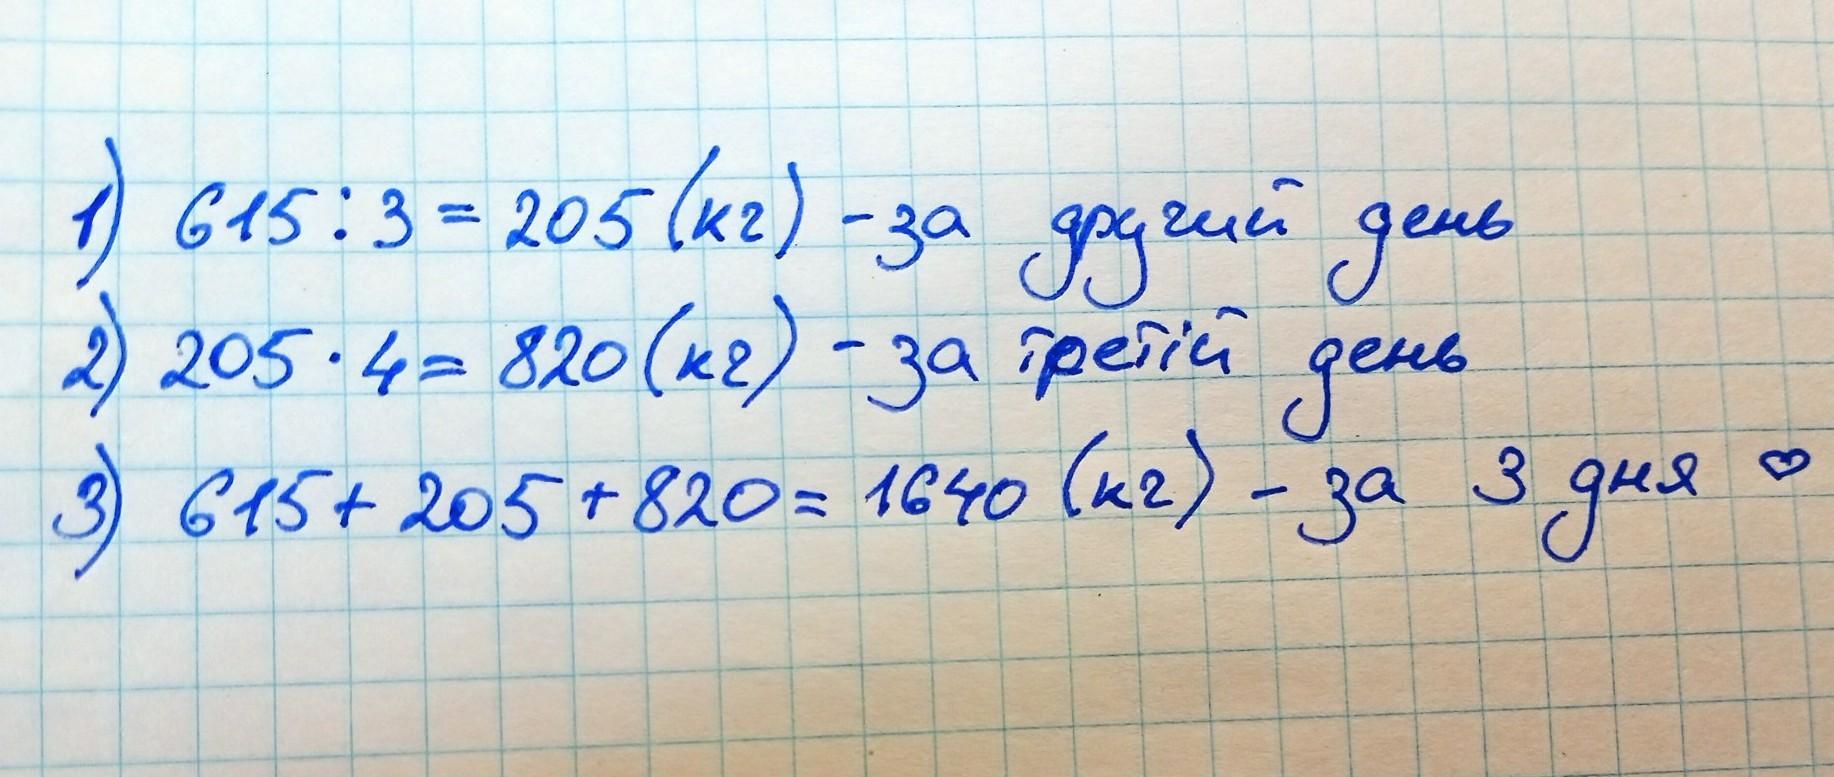 1) 615:3=205(кг) -за другий день
2) 205·4=820(кг) -за третій день
3) 615+205+820=1640(кг) -за 3 дня ♡